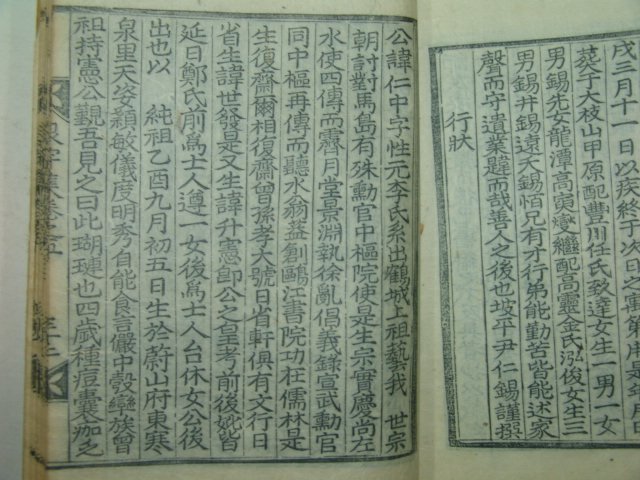 戌三月十一日以疾終于次日之寅
葬于大枝山甲原配豊川任氏致達女生一男一女
男錫先女龍潭高奭燮繼配高靈金氏泓俊女生三
男錫井錫遠天錫恒兄有才行弟能勤苦皆能述家
聲而守遺業韙而哉善人之後也坡平尹仁錫謹撰
行狀
公諱仁中字性元李氏系出鶴城上祖藝我 世宗
朝討對馬島有殊勳官中樞院使是生宗實慶尚左
水使四傳而霽月堂景淵執徐亂倡義錄宣武勳官
同中樞再傳而聽水翁益創鷗江書院功在儒林是
生復齋爾相復齋曾孫孝大號日省軒俱有文行日
省生諱世發是又生諱升憲卽公之皇考前後妣皆
延日鄭氏前爲士人遵一女後爲士人台休女公後
出也以 純祖乙酉九月初五日生於蔚山府東寒
泉里天姿穎敏儀度明秀自能食言儼中殼戀族曾
祖持憲公覲吾見之曰此瑚璉也四歲種痘囊痂之